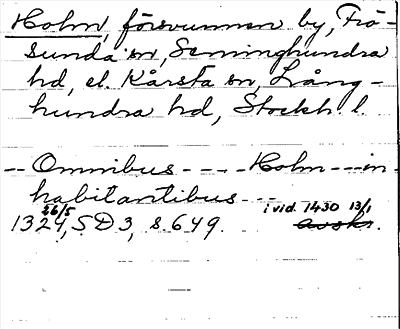 Holm, försvunnen by, Frö-
sunda sn, Seminghundra
hd, el. Kårsta sn, Lång-
hundra hd, Stockh. l.
-- Omnibus - - - - Holm - - - in-
habitantibus - - -
26/5 i vid. 1430 13/1
1324, SD 3, s. 649. avskr.